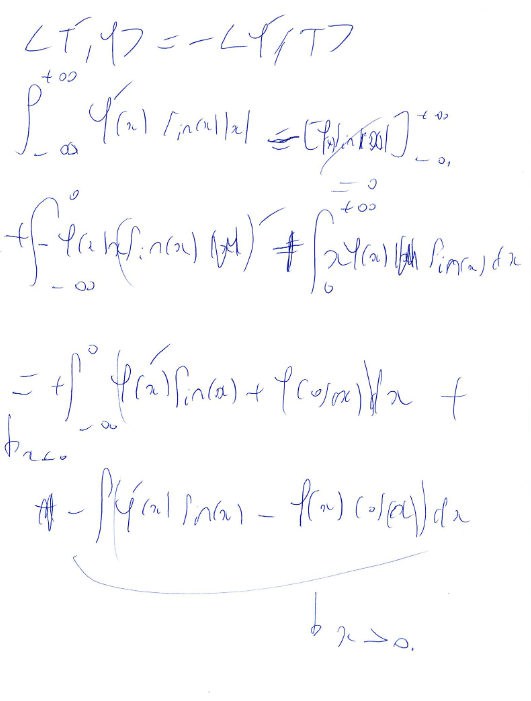 <T', φ> = -<φ', T>
∫_{-∞}^{+∞} φ'(x) sin(x)|x| = [φ sin(x)|x|]_{-∞}^{+∞}
= 0
+ ∫_{-∞}^{0} - φ(x) (sin(x) |x|)' + ∫_{0}^{+∞} x φ(x) sin(x) dx
= + ∫_{-∞}^{0} (φ'(x) sin(x) + φ cos(x)) dx +
x<0
- ∫ (φ'(x) sin(x) - φ(x) cos(x)) dx
x>0.